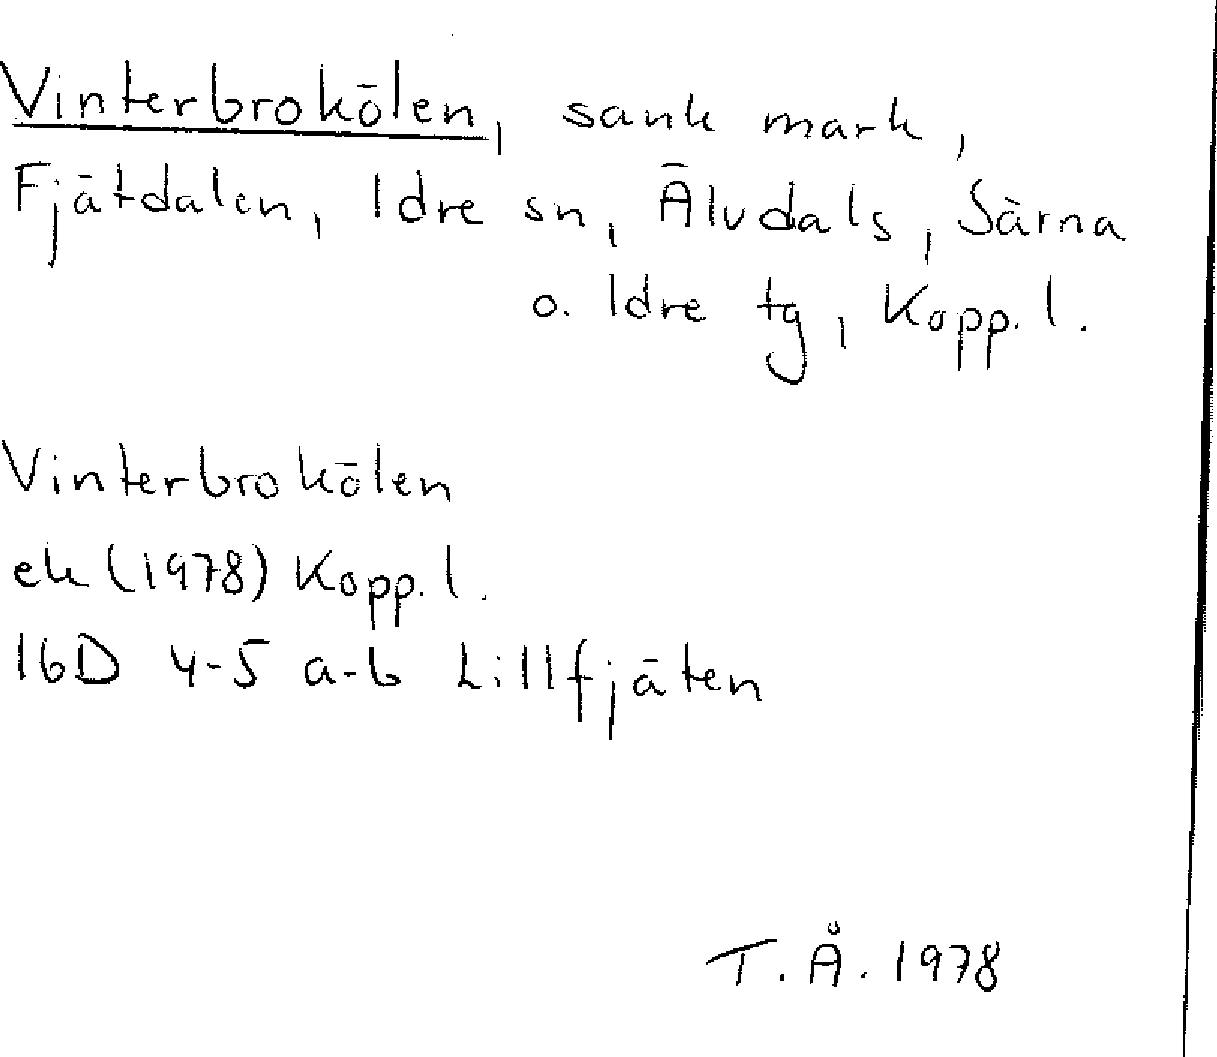 Vinterbrokölen, sank mark,
Fjätdalen, Idre sn, Älvdals, Särna
o. Idre tg, Kopp. l.
Vinterbrokölen
ek (1978) Kopp. l.
16D 4-5 a-b Lillfjäten
T. Å. 1978